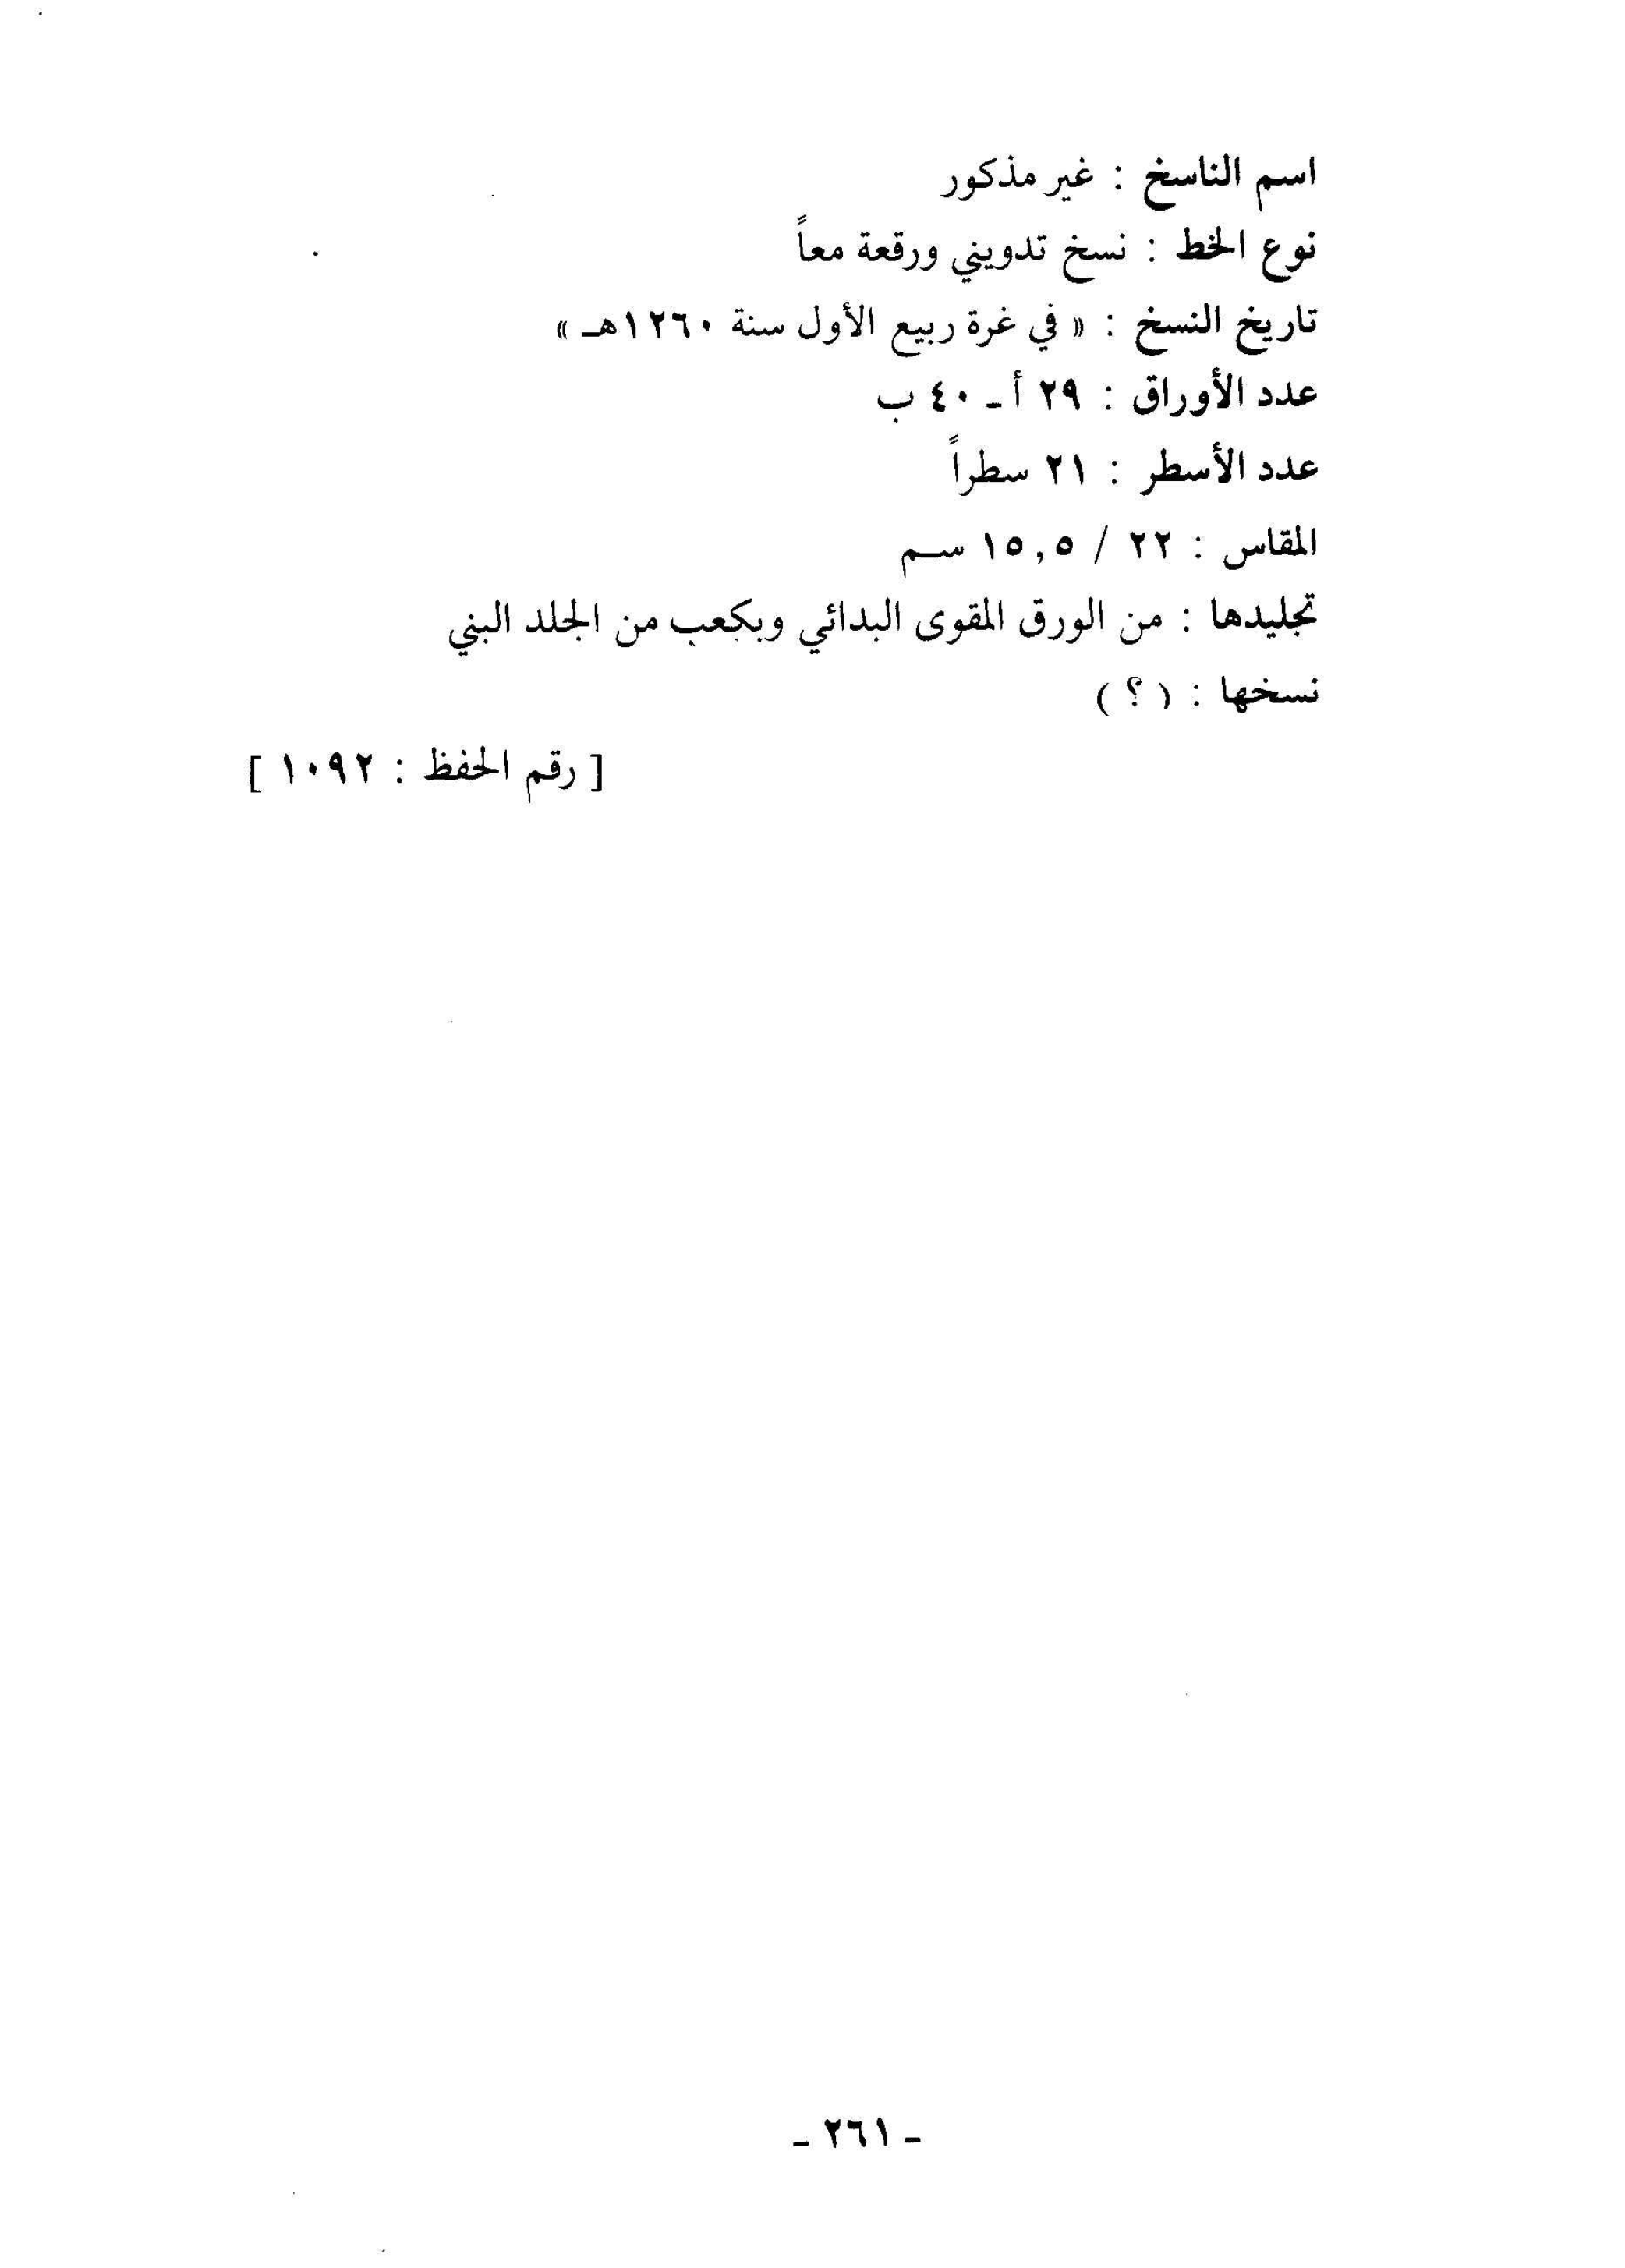 اسم الناسخ : غير مذكور
نوع الخط : نسخ تدويني ورقعة معاً
تاريخ النسخ : « في غرة ربيع الأول سنة ١٢٦٠هـ »
عدد الأوراق : ٢٩ أ ـ ٤٠ ب
عدد الأسطر : ٢١ سطراً
المقاس : ٢٢ / ١٥,٥ سـم
تجليدها : من الورق المقوى البدائي وبكعب من الجلد البني
نسخها : ( ؟ )
[ رقم الحفظ : ١٠٩٢ ]
ـ ٢٦١ ـ